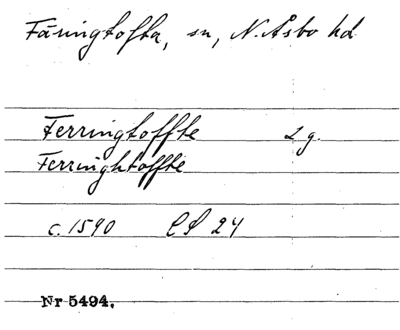 Färingtofta, sn, N. Åsbo hd
Ferringtoffte 2 g.
Ferringhtoffte
c. 1590 LS 24
Nr 5494.